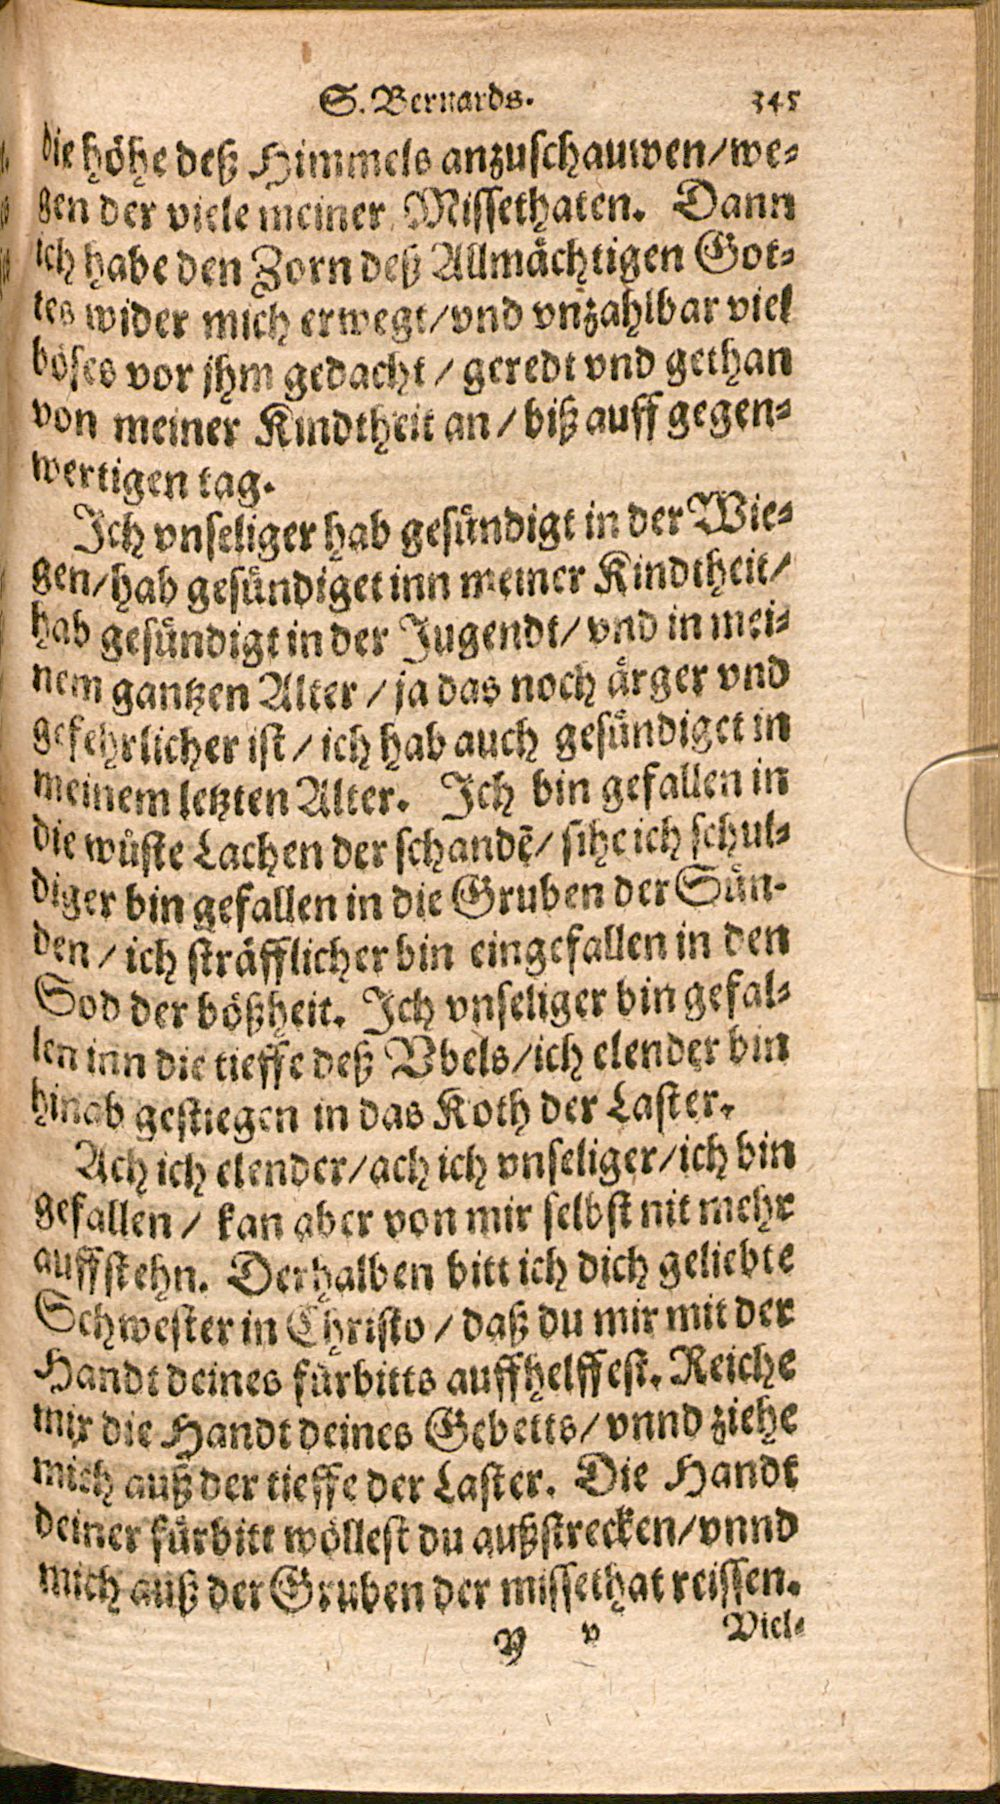 S. Bernards. 345
die höhe deß Himmels anzuschauwen/we-
gen der viele meiner Missethaten. Dann
ich habe den Zorn deß Allmächtigen Got-
tes wider mich erwegt/vnd vnzahlbar viel
böses vor jhm gedacht / geredt vnd gethan
von meiner Kindtheit an / biß auff gegen-
wertigen tag.
Ich vnseliger hab gesündigt in der Wie-
gen/hab gesündiget inn meiner Kindtheit/
hab gesündigt in der Jugendt/ vnd in mei-
nem gantzen Alter / ja das noch ärger vnd
gefehrlicher ist / ich hab auch gesündiget in
meinem letzten Alter. Ich bin gefallen in
die wüste Lachen der schandẽ/ sihe ich schul-
diger bin gefallen in die Gruben der Sün-
den / ich sträfflicher bin eingefallen in den
Sod der bößheit. Ich vnseliger bin gefal-
len inn die tieffe deß Vbels/ich elender bin
hinab gestiegen in das Koth der Laster.
Ach ich elender/ach ich vnseliger/ich bin
gefallen / kan aber von mir selbst nit mehr
auffstehn. Derhalben bitt ich dich geliebte
Schwester in Christo / daß du mir mit der
Handt deines fürbitts auffhelffest. Reiche
mir die Handt deines Gebetts/ vnnd ziehe
mich auß der tieffe der Laster. Die Handt
deiner fürbitt wöllest du außstrecken/vnnd
mich auß der Gruben der missethat reissen.
Y v Viel-